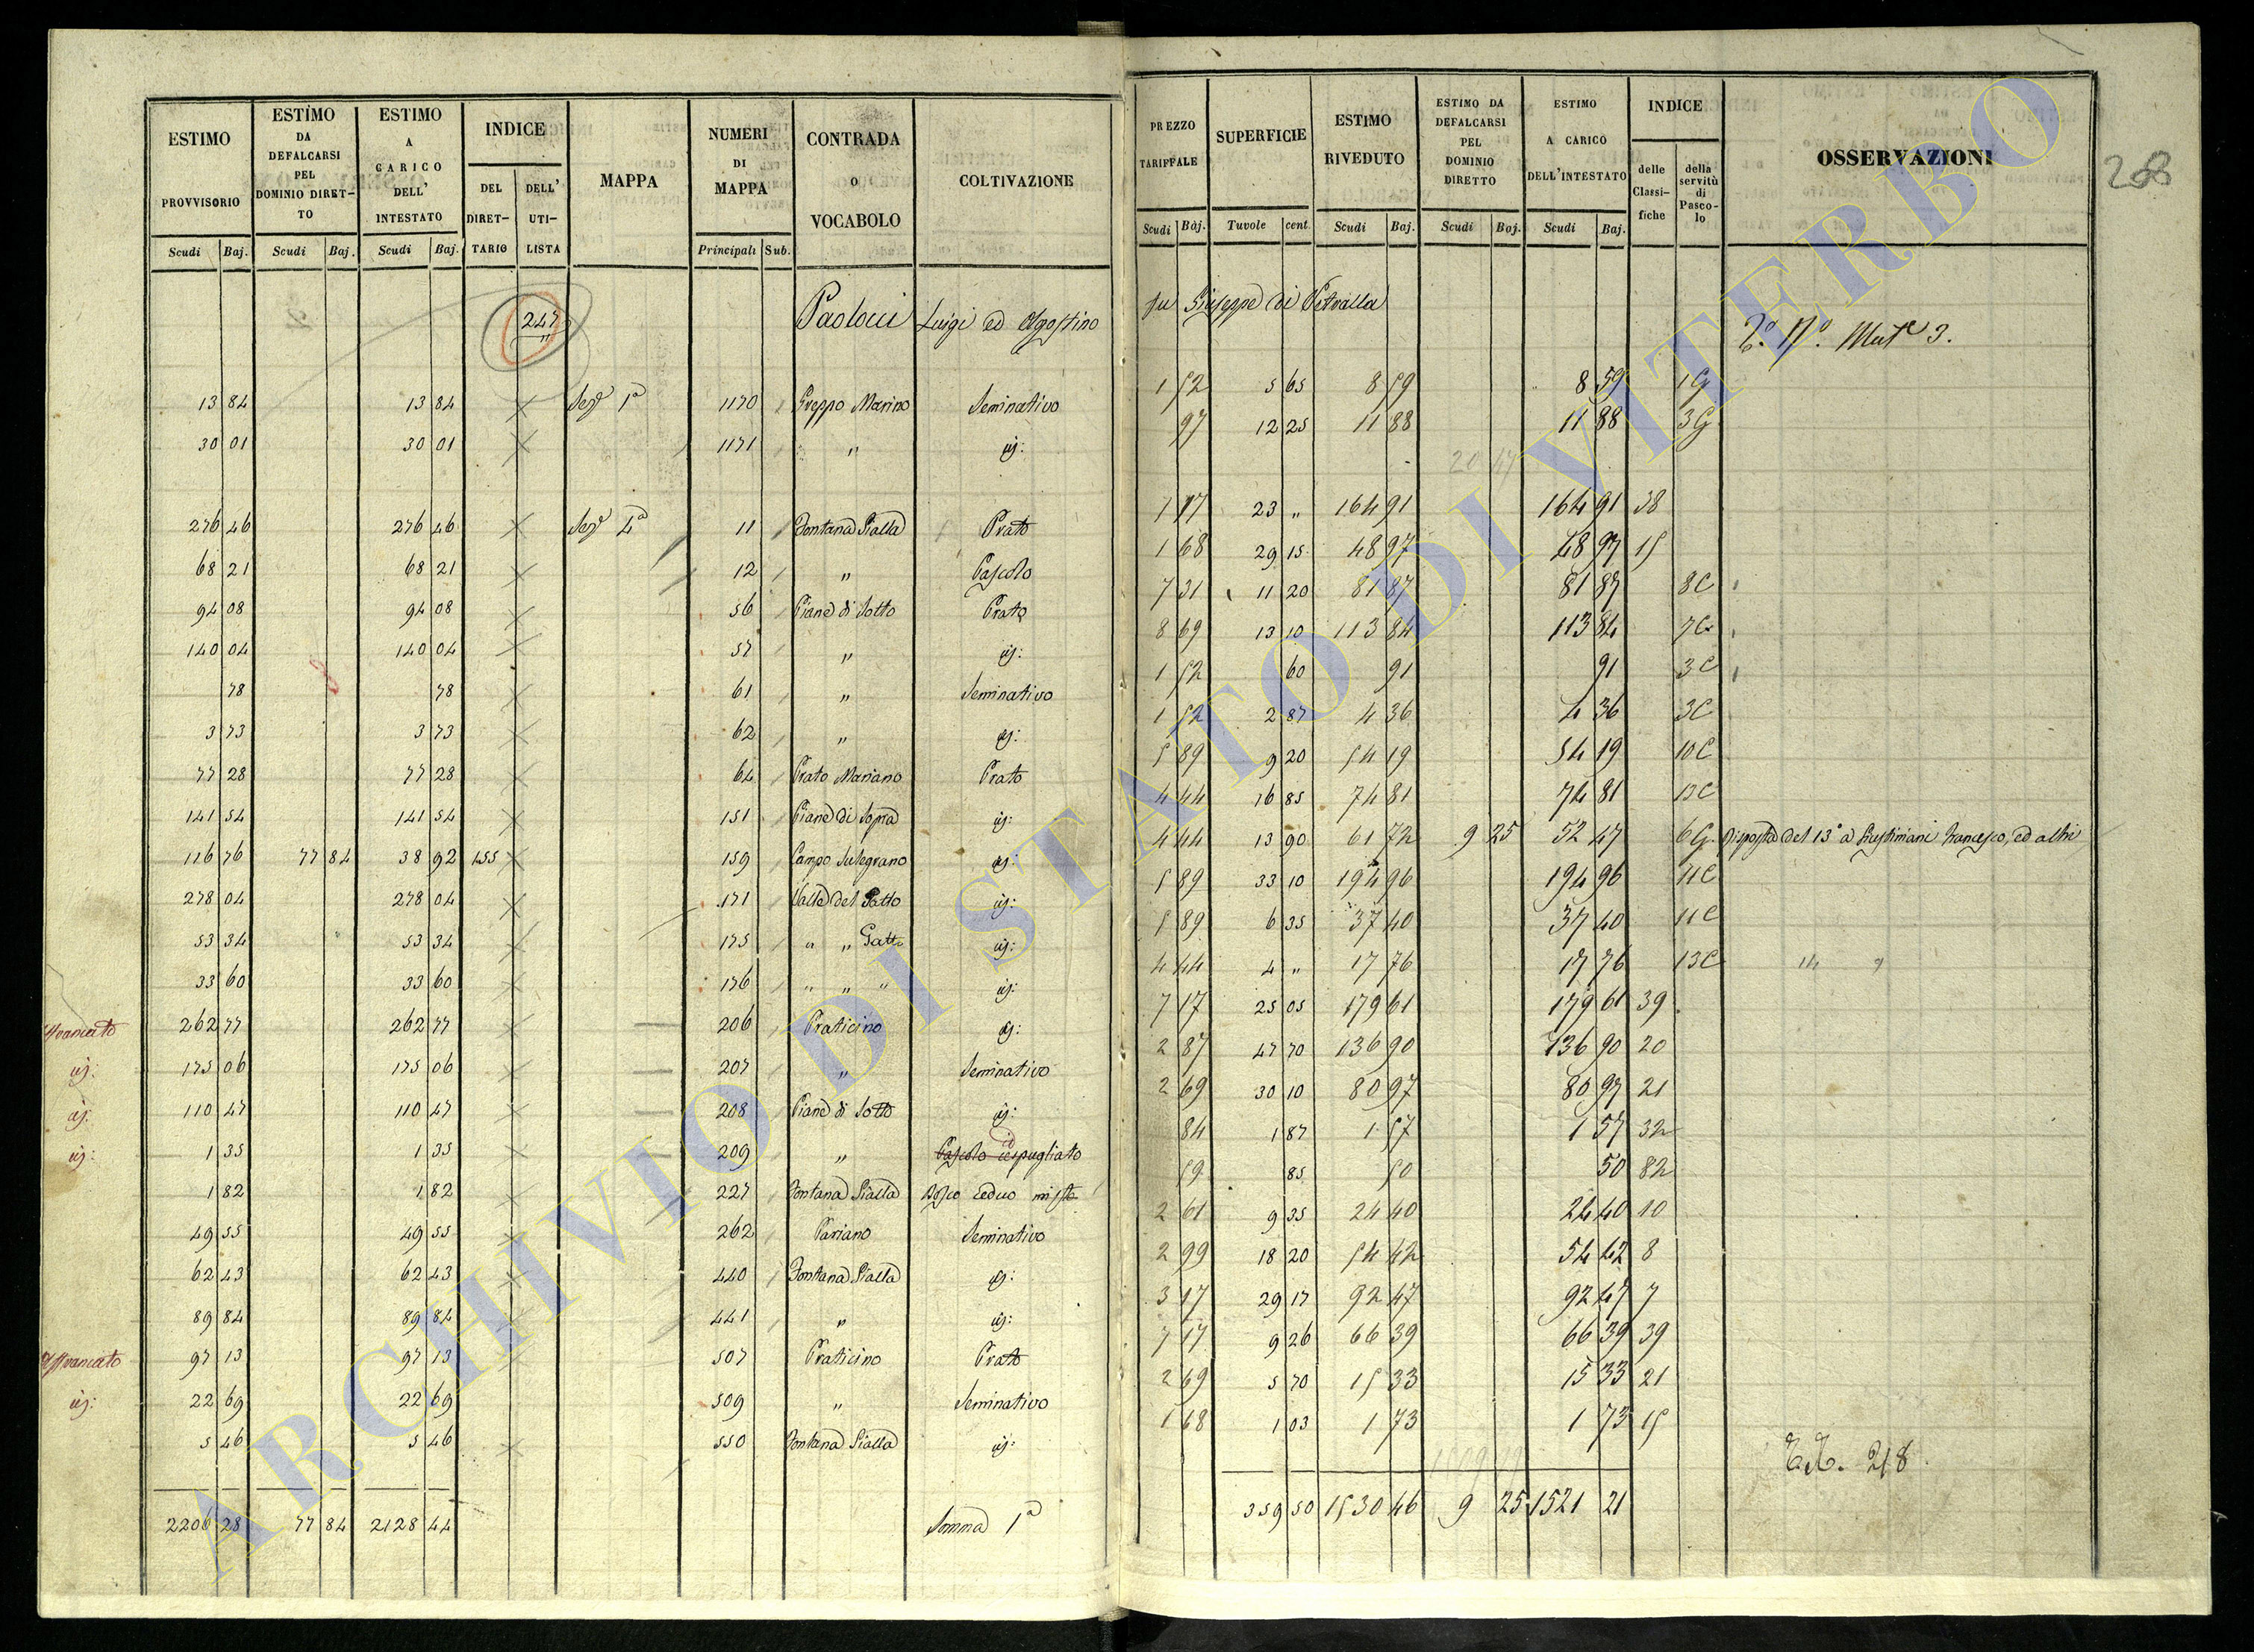 ESTIMO PROVVISORIO Scudi Baj.
ESTIMO DA DEFALCARSI PEL DOMINIO DIRETTO Scudi Baj.
ESTIMO A CARICO DELL' INTESTATO Scudi Baj.
INDICE DEL DIRETTARIO DELL' UTILISTA
MAPPA
NUMERI DI MAPPA Principali Sub.
CONTRADA O VOCABOLO
COLTIVAZIONE
PREZZO TARIFFALE Scudi Baj.
SUPERFICIE Tavole cent
ESTIMO RIVEDUTO Scudi Baj.
ESTIMO DA DEFALCARSI PEL DOMINIO DIRETTO Scudi Baj.
ESTIMO A CARICO DELL'INTESTATO Scudi Baj.
INDICE delle Classifiche della servitù di Pascolo
OSSERVAZIONI
268
247 Paolocci Luigi ed Agostino fu Giuseppe di Vetralla
13 84 13 84 Sez.e 1a 1170 Greppo Marino Seminativo 1 52 5 65 8 59 8 59 1G
30 01 30 01 1171 " id: 97 12 25 11 88 11 88 3G
276 46 276 46 Sez.e 4a 11 Fontana Gialla Prato 7 17 23 " 164 91 164 91 38
68 21 68 21 12 " Pascolo 1 68 29 15 48 97 48 97 15
94 08 94 08 56 Piane di Sotto Prato 7 31 11 20 81 87 81 87 8C
140 04 140 04 57 " id: 8 69 13 10 113 84 113 84 7C
78 78 61 " Seminativo 1 52 60 91 91 3C
3 73 3 73 62 " id: 1 52 2 87 4 36 4 36 3C
77 28 77 28 64 Prato Mariano Prato 5 89 9 20 54 19 54 19 10C
141 54 141 54 151 Piane di Sopra id: 4 44 16 85 74 81 74 81 13C
116 76 77 84 38 92 455 159 Campo id: 4 44 13 90 61 72 9 25 52 47 6G Risposta del 13o a Giustiniani Francesco, ed altri
278 04 278 04 171 Valle del Gatto id: 5 89 33 10 194 96 194 96 11C
53 34 53 34 175 " " Gatto id: 5 89 6 35 37 40 37 40 11C
33 60 33 60 176 " " " id: 4 44 4 " 17 76 17 76 13C
Affrancato 262 77 262 77 206 Praticino id: 7 17 25 05 179 61 179 61 39
id: 175 06 175 06 207 " Seminativo 2 87 47 70 136 90 136 90 20
id: 110 47 110 47 208 Piane di Sotto id: 2 69 30 10 80 97 80 97 21
id: 1 35 1 35 209 " Pascolo cespugliato 84 1 87 1 57 1 57 32
1 82 1 82 227 Fontana Gialla Bosco ceduo misto 59 85 50 50 82
49 55 49 55 262 Pariano Seminativo 2 61 9 35 24 40 24 40 10
62 43 62 43 440 Fontana Gialla id: 2 99 18 20 54 42 54 42 8
89 84 89 84 441 " id: 3 17 29 17 92 47 92 47 7
Affrancato 97 13 97 13 507 Praticino Prato 7 17 9 26 66 39 66 39 39
id: 22 69 22 69 509 " Seminativo 2 69 5 70 15 33 15 33 21
5 46 5 46 550 Fontana Gialla id: 1 68 1 03 1 73 1 73 15
218
2206 28 77 84 2128 44 Somma 1a 359 50 1530 46 9 25 1521 21
ARCHIVIO DI STATO DI VITERBO